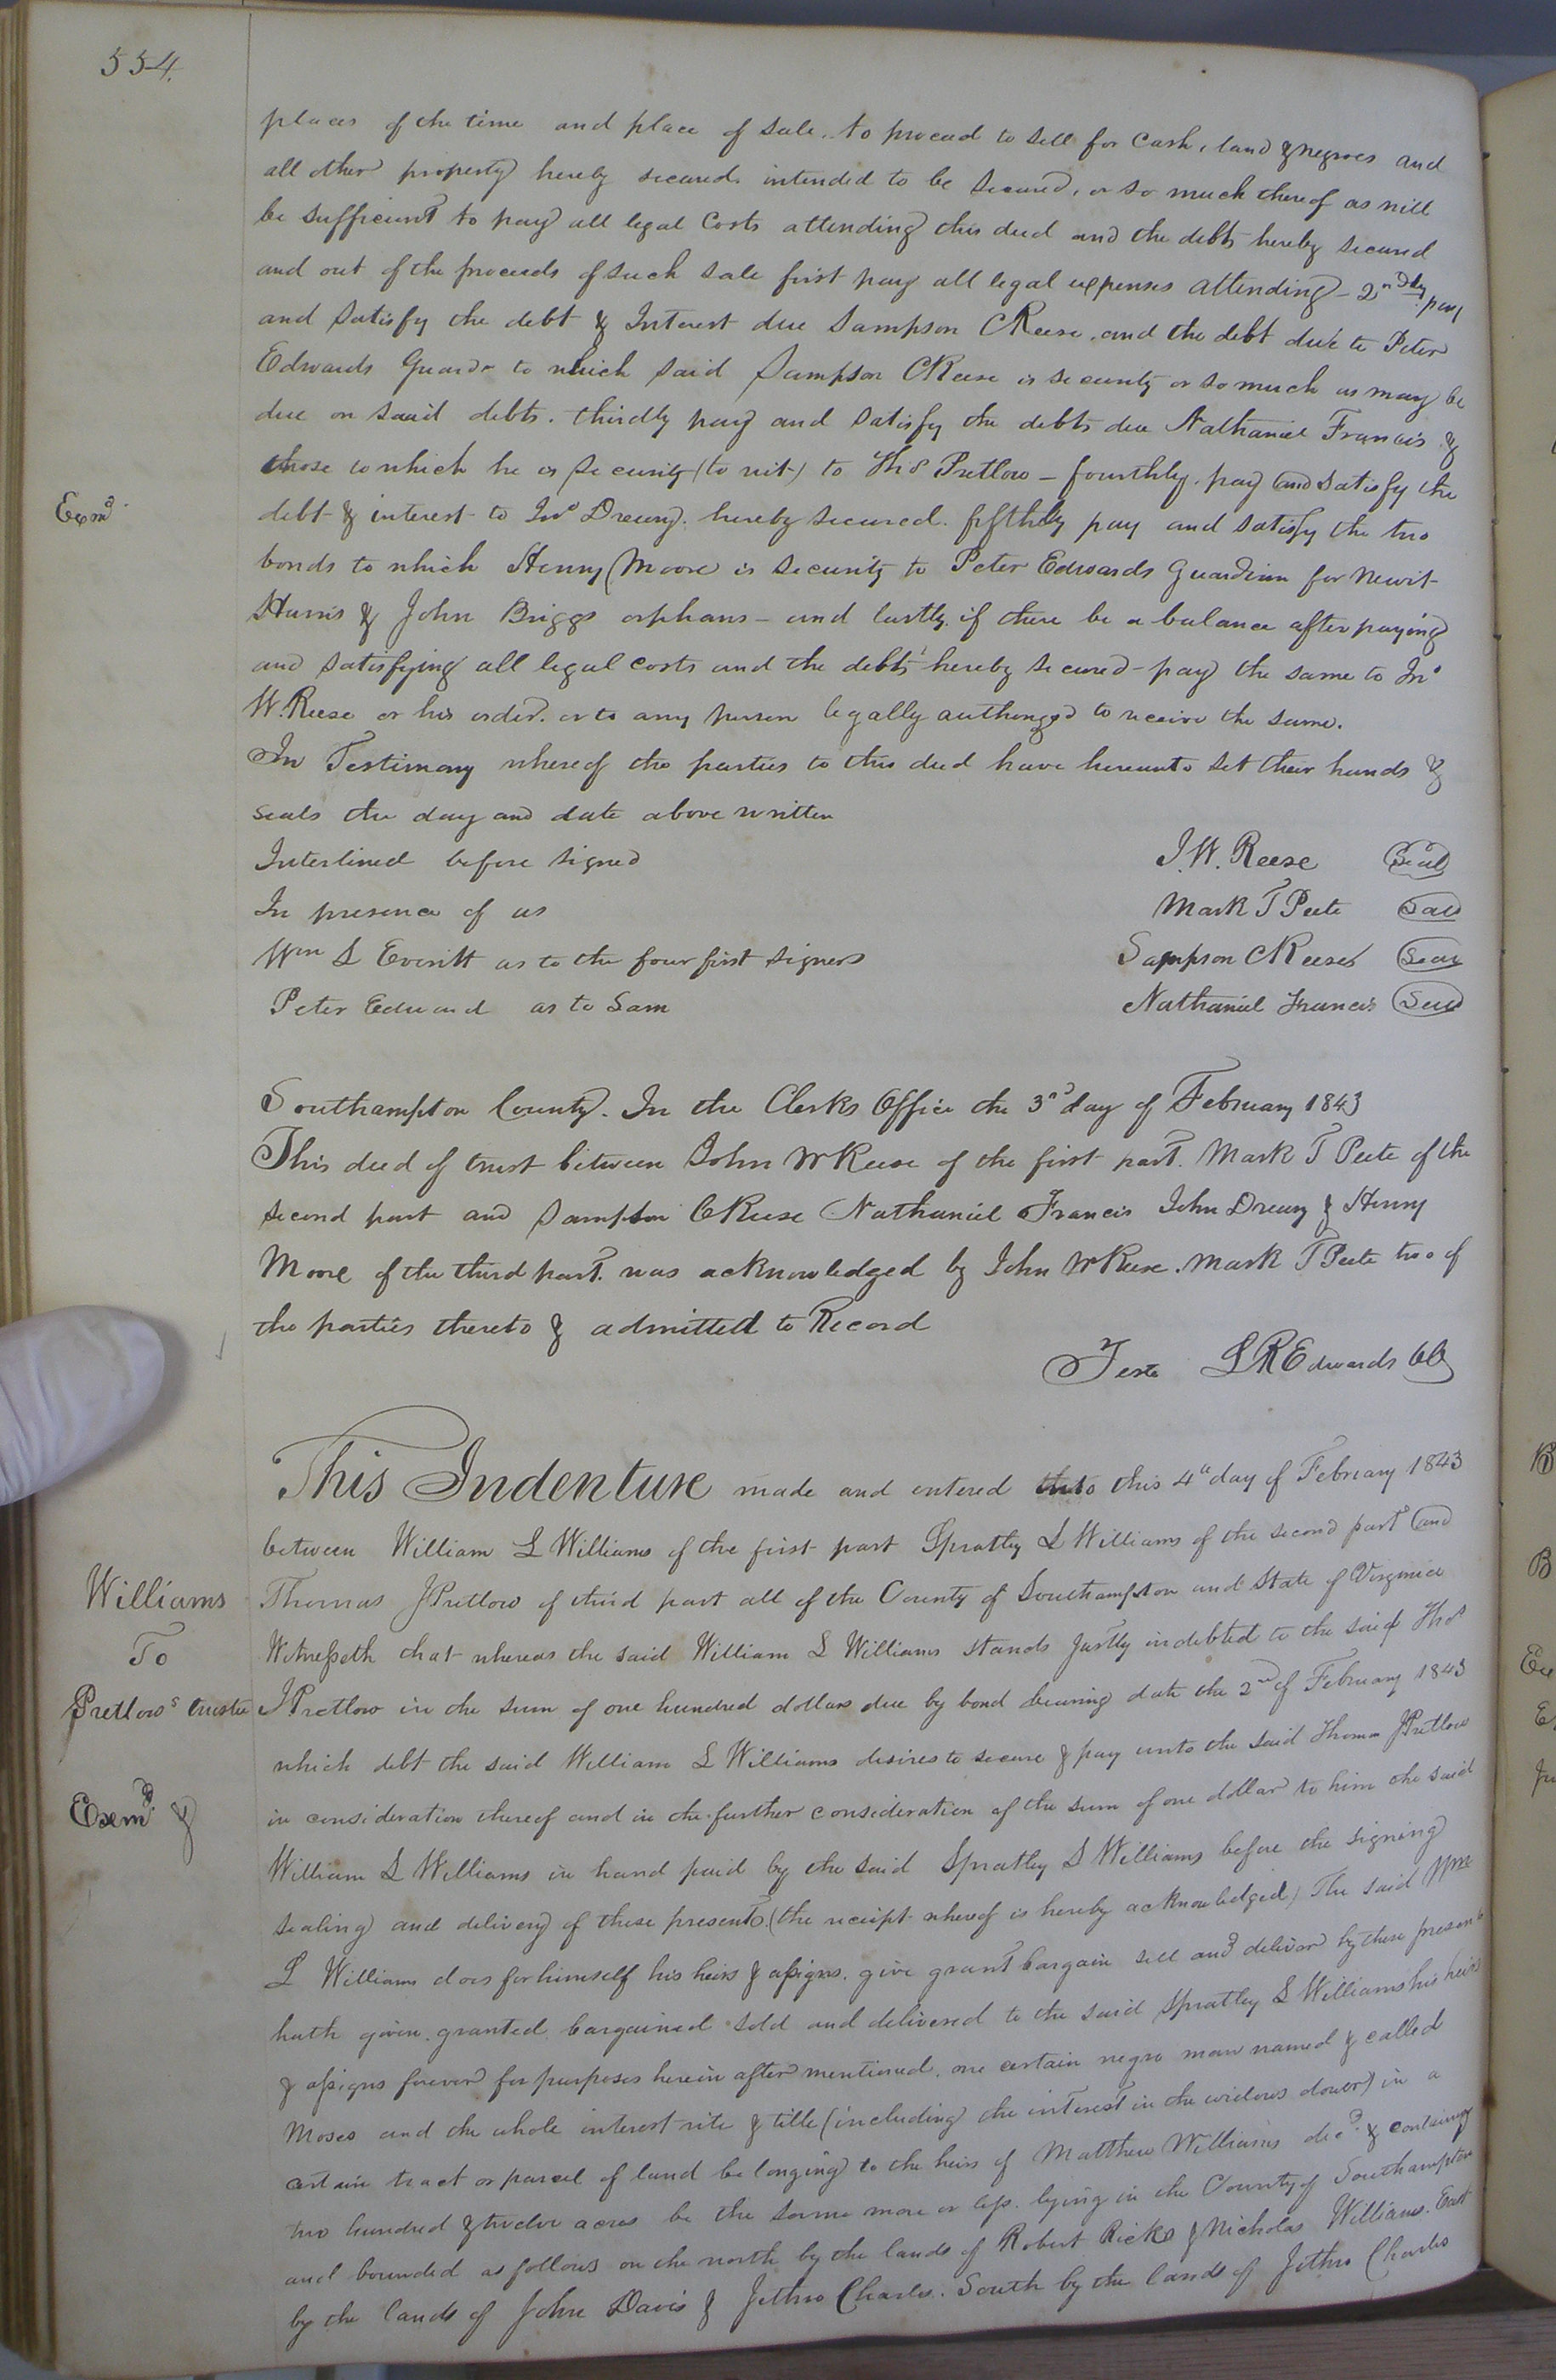 554.
places of the time and place of sale. to proceed to sell for Cash, land & negroes and
all other property hereby secured. intended to be secured, or so much thereof as will
be sufficient to pay all legal Costs attending this deed and the debts hereby secured
and out of the proceeds of such sale first pay all legal expenses attending – 2ndly pay
and satisfy the debt & Interest due Sampson C Reese. and the debt due to Peter
Edwards Guardr to which said Sampson C Reese is security or so much as may be
due on said debts. thirdly pay and satisfy the debts due Nathaniel Francis &
those to which he is security (to wit) to Thos Pretlow – fourthly. pay and satisfy the
Exmd
debt & interest to Jno Drewry. hereby secured. fifthly pay and satisfy the two
bonds to which Henry Moore is security to Peter Edwards Guardian for Newit
Harris & John Briggs orphans – and lastly. if there be a balance after paying
and satisfying all legal costs and the debts hereby secured – pay the same to Jno
W. Reese or his order. or to any person legally authorized to receive the same.
In Testimony whereof the parties to this deed have hereunto set their hands &
seals the day and date above written
Interlined before signed J. W. Reese Seal
In presence of us Mark T Peete Seal
Wm L Everitt as to the four first signers Sampson C Reese Seal
Peter Edward as to Sam Nathaniel Francis Seal
Southampton County. In the Clerks Office the 3rd day of February 1843
This deed of trust between John W Reese of the first part. Mark T Peete of the
second part and Sampson C Reese Nathaniel Francis John Drewry & Henry
Moore of the third part. was acknowledged by John W Reese. Mark T Peete two of
the parties thereto & admitted to Record
Teste L R Edwards CC
This Indenture made and entered into this 4th day of February 1843
between William L Williams of the first part Spratley L Williams of the second part and
Williams
Thomas J Pretlow of third part all of the County of Southampton and State of Virginia
To
Witnesseth that whereas the said William L Williams stands justly indebted to the said Thos
Pretlows trustee
J Pretlow in the sum of one hundred dollars due by bond bearing date the 2nd of February 1843
which debt the said William L Williams desires to secure & pay unto the said Thomas J Pretlow
Exemd &
in consideration thereof and in the further consideration of the sum of one dollar to him the said
William L Williams in hand paid by the said Spratley L Williams before the signing
sealing and delivery of these presents. (the receipt whereof is hereby acknowledged) The said Wm
L Williams does for himself his heirs & assigns. give grant bargain sell and deliver by these presents
hath given. granted. bargained sold and delivered to the said Spratley L Williams his heirs
& assigns forever for purposes herein after mentioned. one certain negro man named & called
Moses and the whole interest rite & title (including the interest in the widows dower) in a
certain tract or parcel of land belonging to the heirs of Matthew Williams decd & containing
two hundred & twelve acres be the same more or less. lying in the County of Southampton
and bounded as follows on the north by the lands of Robert Ricks & Nicholas Williams. East
by the lands of John Davis & Jethro Charles. South by the lands of Jethro Charles